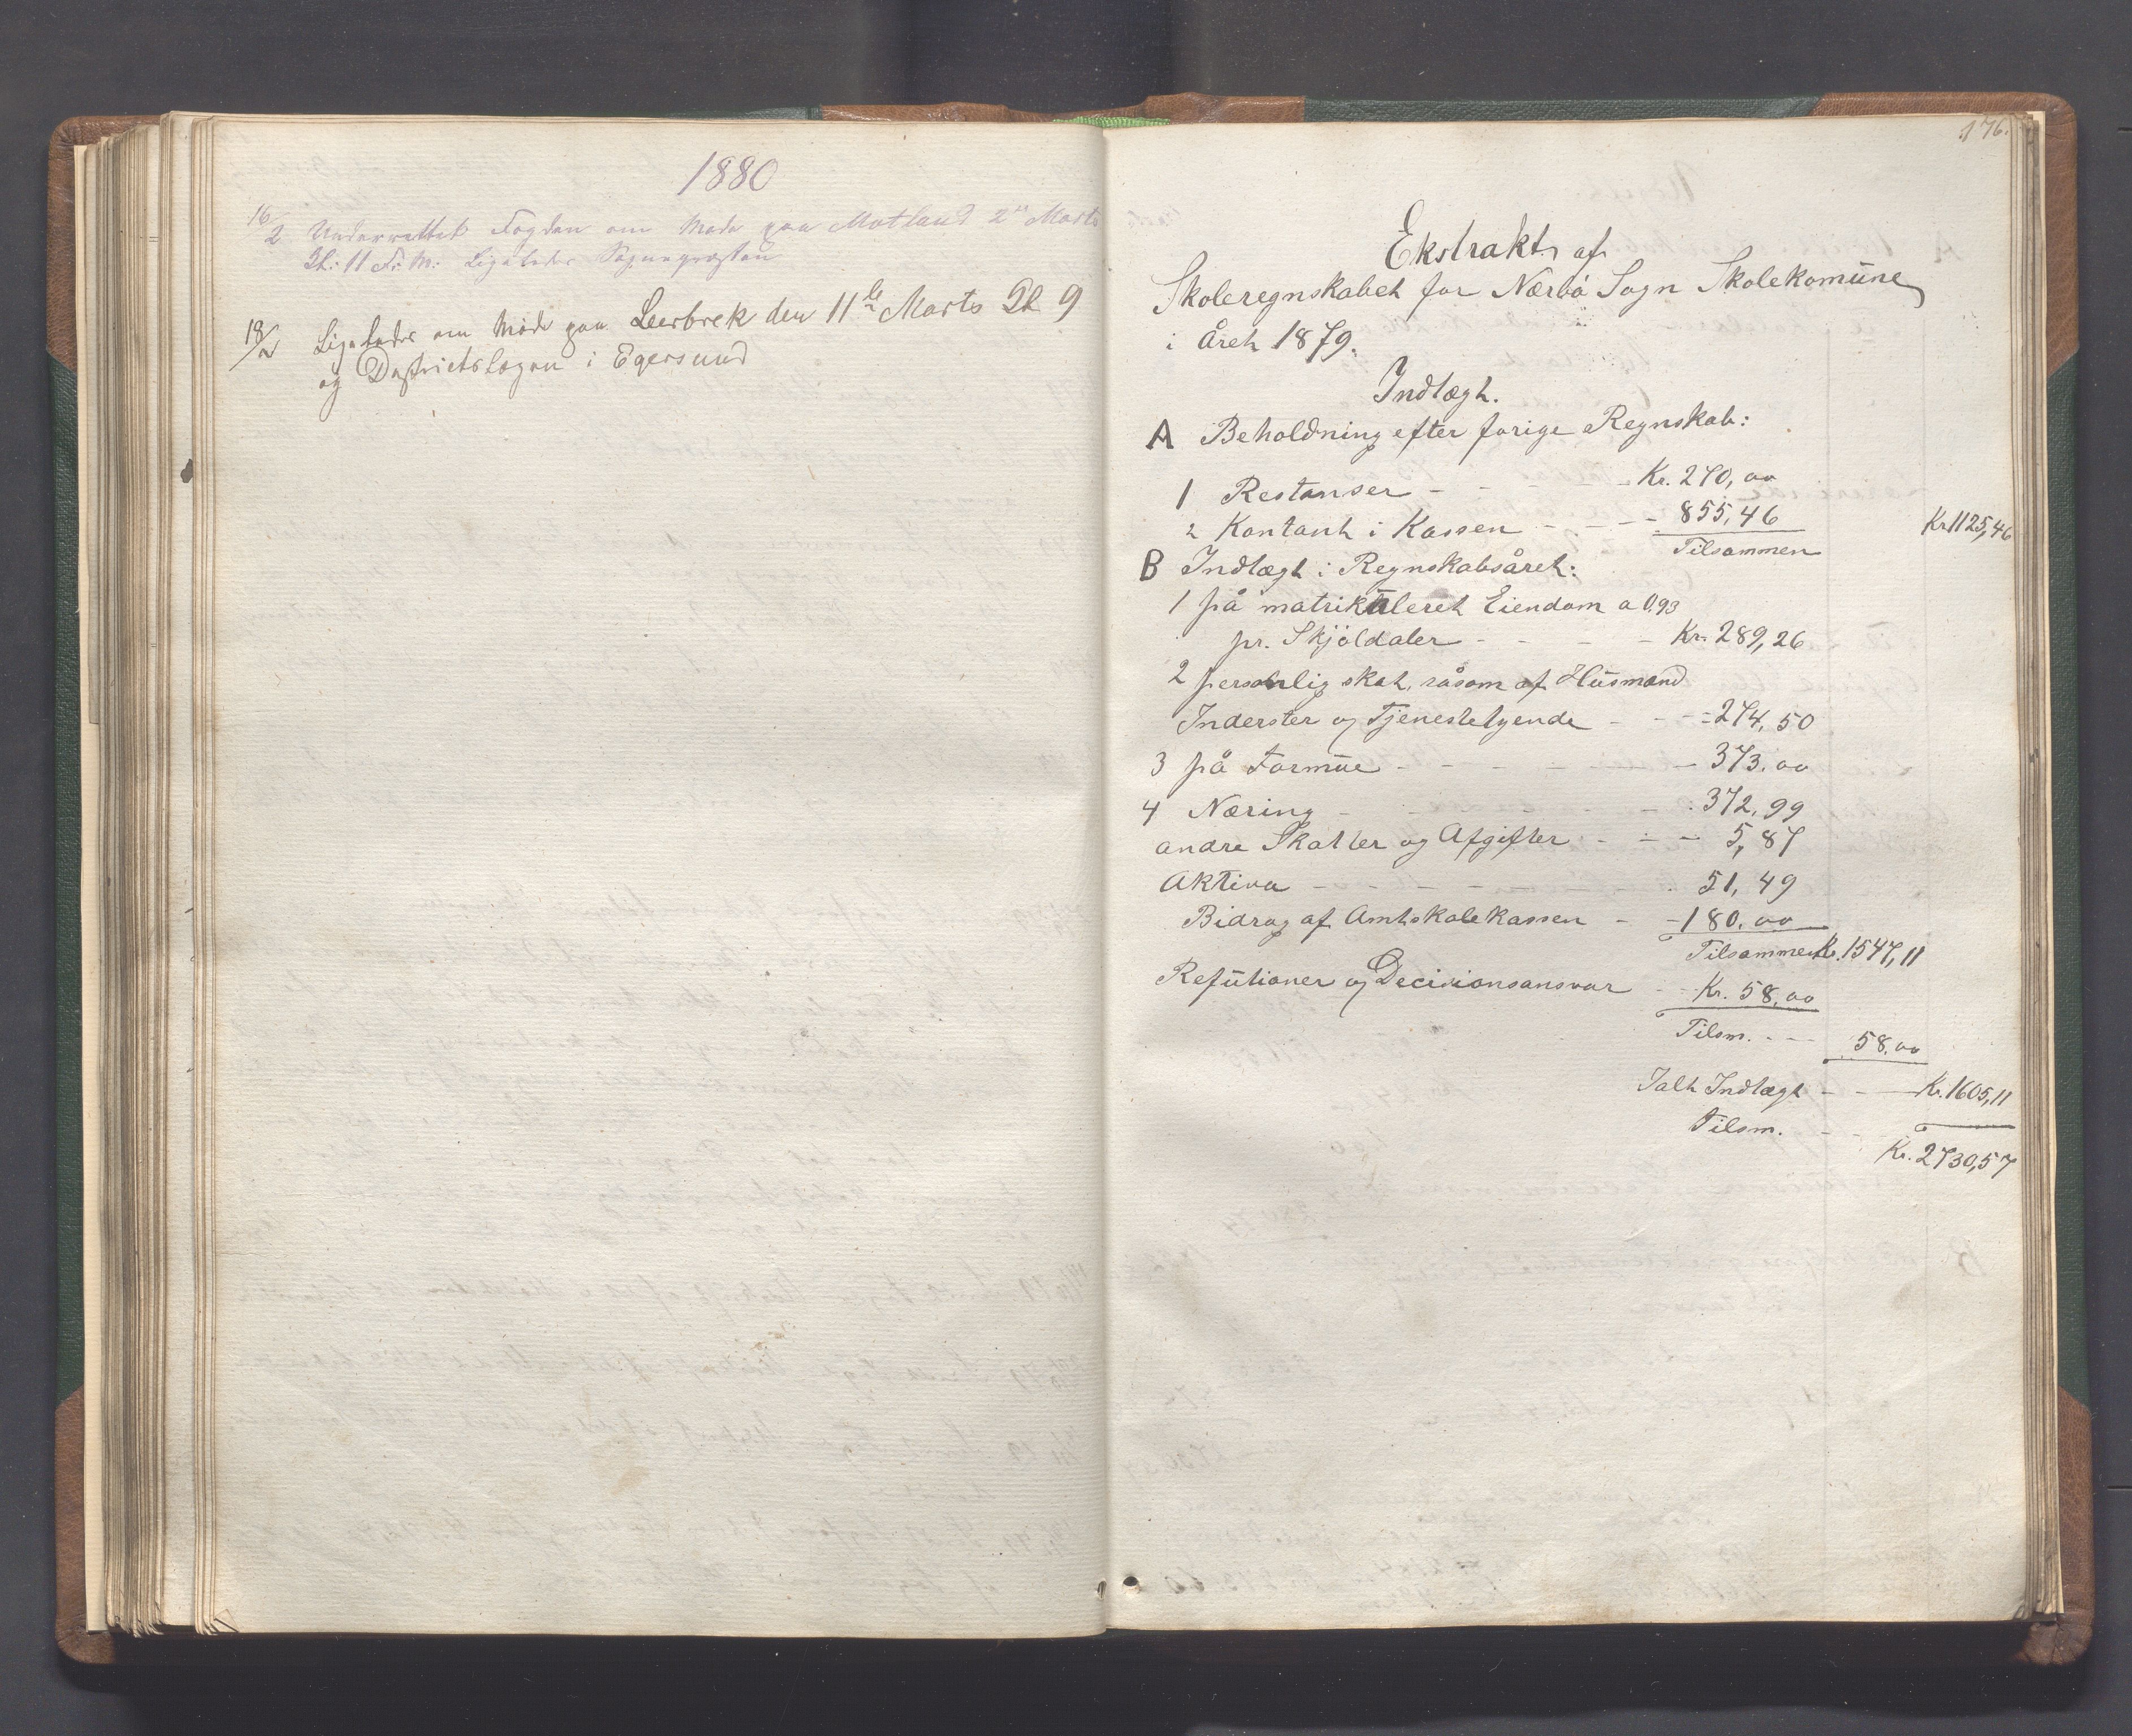 1880
16/2 Underrettet Fogden om Møde paa Motland 2den Marts
Kl: 11 F. M: Ligeledes Sognepræsten
18/2 Ligeledes om Møde paa Leerbrek den 11te Marts Kl 9
og Distrietslægen i Egersund
176.
Ekstrakt af
Skoleregnskabet for Nærbø Sogn Skolekomune
i Året 1879.
Indtægt.
A Beholdning efter forige Regnskab:
1 Restanser - - - - Kr. 270,00
2 Kontant i Kassen - - - - 855,46
Tilsammen Kr 1125,46
B Indtægt i Regnskabsåret:
1 på matrikuleret Eiendom a 0,93
pr. Skjöldaler - - - - Kr. 289,26
2 personlig skat, såsom af Husmænd
Inderster og Tjenestetyende - - - 274,50
3 på Formue - - - - - - 373.00
4 Næring - - - - - - 372,99
andre Skatter og Afgifter - - - 5,87
Aktiva - - - - - - 51,49
Bidrag af Amtskolekassen - - 180.00
Tilsammen Kr. 1547,11
Refutioner og Decisionsansvar - - Kr. 58,00
Tilsm. - - - 58,00
Ialt Indtægt - - - Kr. 1605,11
Tilsm. - - -
Kr. 2730,57